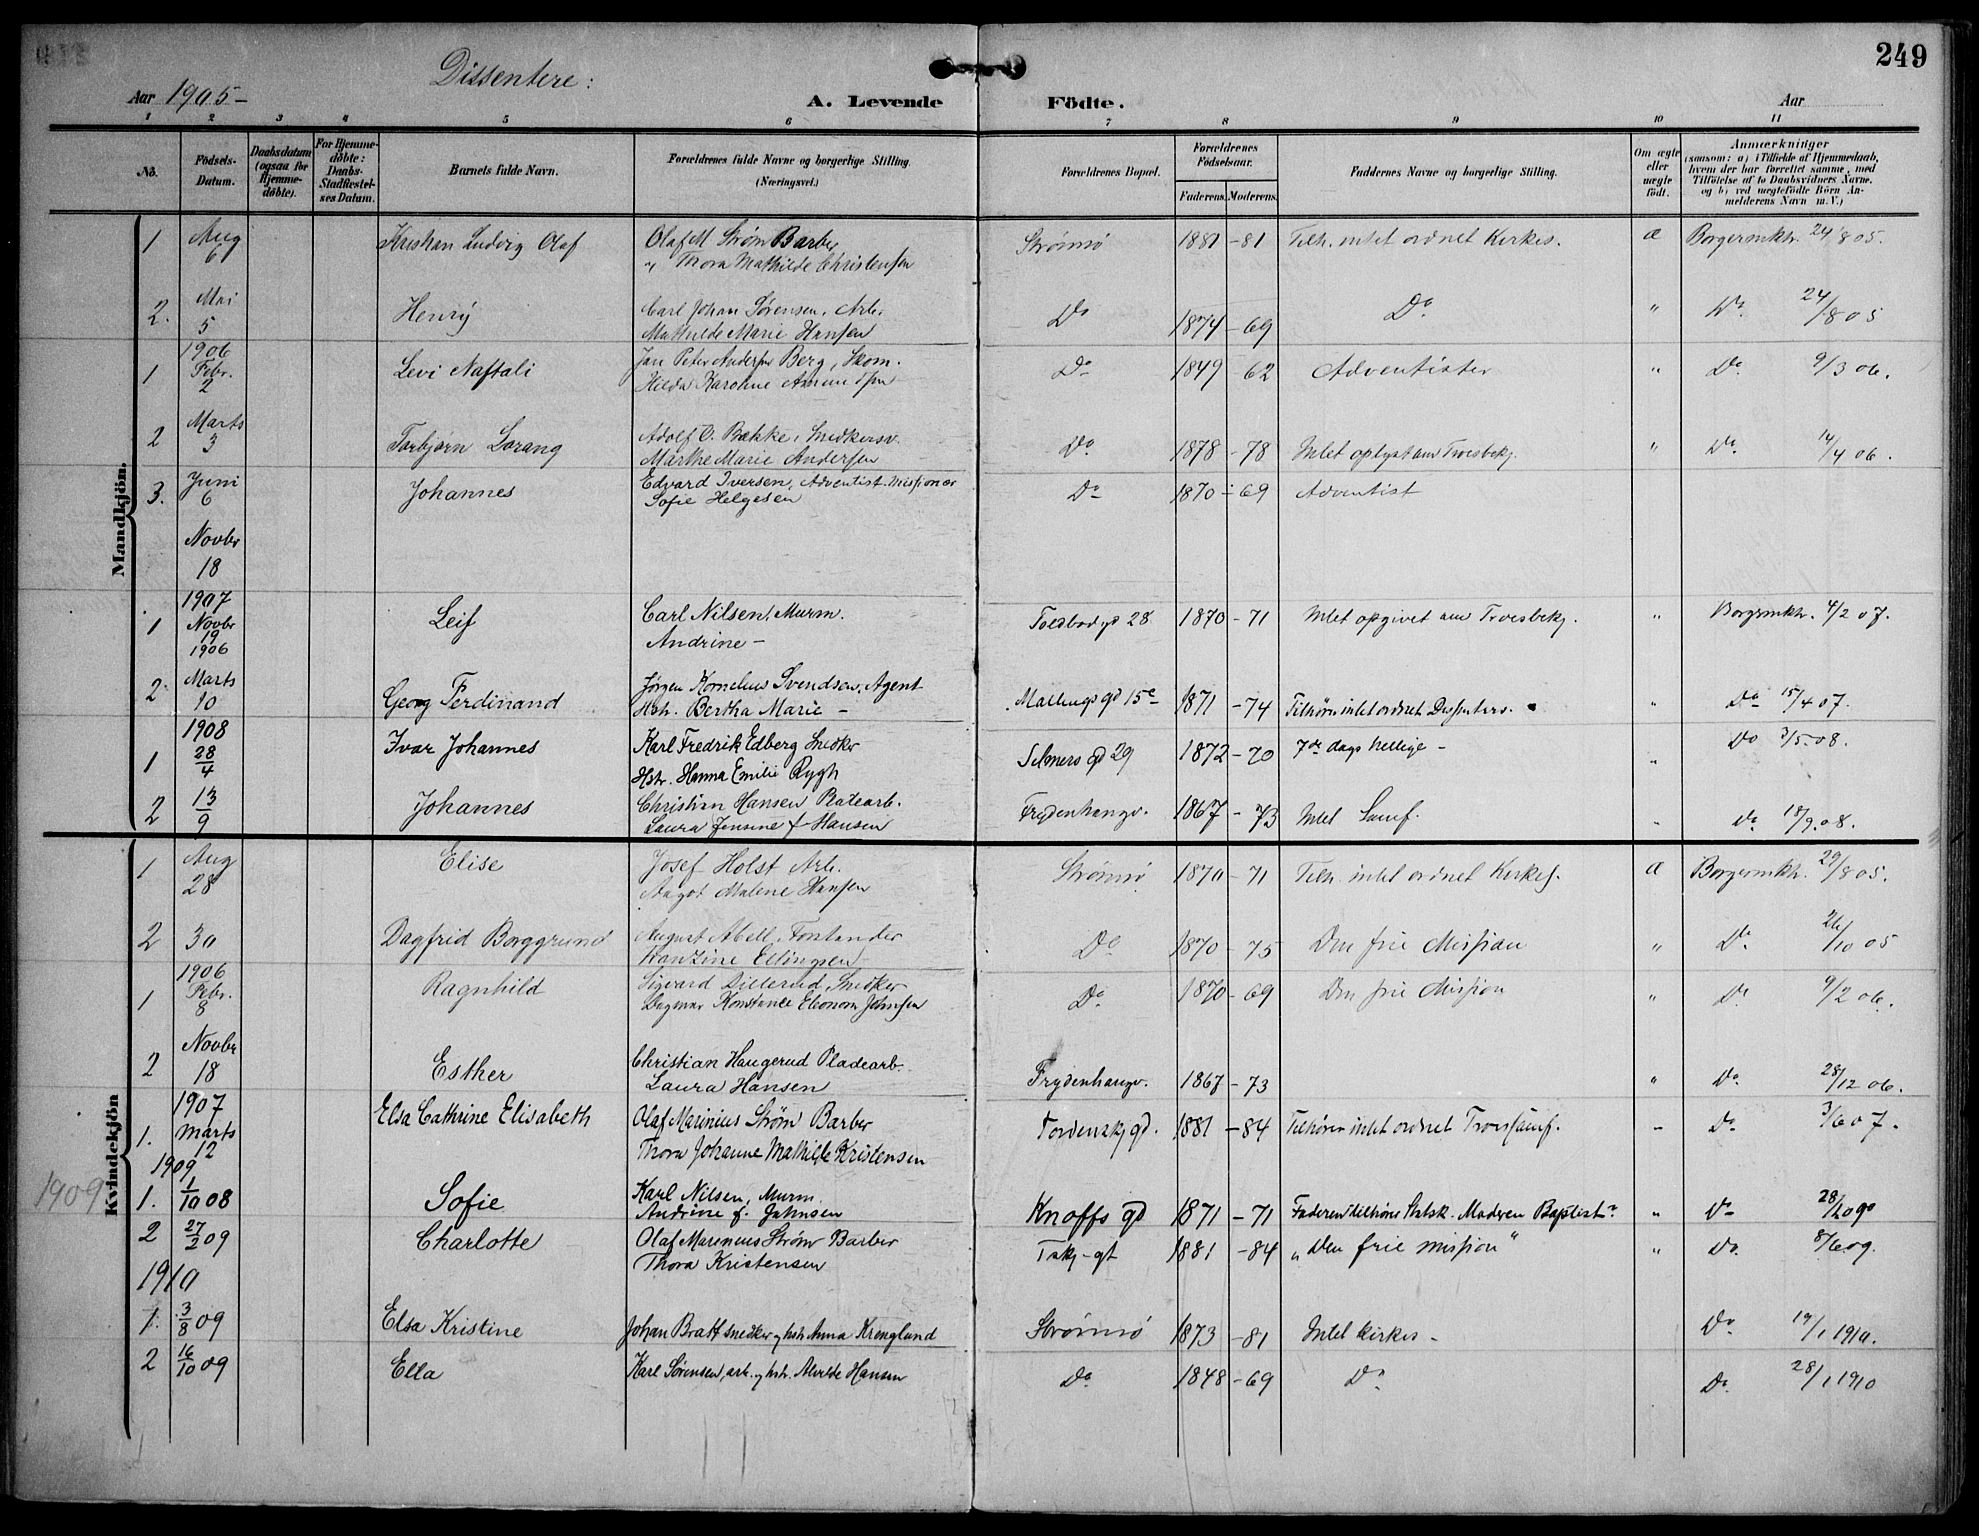 249
Dissentere:
Aar 1905-
A. Levende Födte.
Aar
1 2 3 4 5 6 7 8 9 10 11
No. Födsels-Datum. Daabsdatum (ogsaa for Hjemme-döbte). For Hjemme-döbte: Daabs-Stadfæstel-ses Datum. Barnets fulde Navn. Forældrenes fulde Navne og borgerlige Stilling. (Næringsvei.) Forældrenes Bopæl. Forældrenes Födselsaar. Faderens. Moderens. Faddernes Navne og borgerlige Stilling. Om ægte eller uægte födt. Anmærkninger (saasom: a) i Tilfælde af Hjemmedaab, hvem der har forrettet samme, med Tilföielse af to Daabsvidners Navne, og b) ved uægtefödte Börn An-melderens Navn m.V.)
Mandkjön.
1 Aug 6 Kristian Ludvig Olaf Olaf M Strøm Barber Strømsö 1881 - 81 Tilh. intet ordnet Kirkes. æ Borgermktr. 24/8 05.
" Thora Mathilde Christensen
2. Mai 5 Henry Carl Johan Sørensen, Arb. Do 1874 - 69 Do " Do 24/8 05
Mathilde Marie Hansen
1906
1 Febr. 2 Levi Naftali Jan Peter Andersen Berg, Skom. Do 1849 - 62 Adventister " Do 9/3 06.
Hilda Karoline
2 Marts 3 Torbjørn Lorang Adolf O. Bakke, Snedkersv. Do 1878 - 78 Intet oplyst om Troesbekj. " Do 14/4 06.
Marthe Marie Andersen
3. Juni 6 Johannes Edvard Iversen, Adventist-Missionær Do 1870 - 69 Adventist
Sofie Helgesen
Novbr 18
1907
1 Novbr 19 1906 Leif Carl Nilsen, Murm. Toldbodgd 28 1870 - 71 Intet opgivet om Troesbekj. " Borgermktr. 4/2 07.
Andrine -
2. Marts 10 Georg Ferdinand Jörgen Kornelius Svendsen, Agent Mallings gd 15 1871 - 74 Tilhörer intet ordnet Dissenters. " Do 15/4 07.
Hstr. Bertha Marie -
1908
1 28/4 Ivar Johannes Karl Fredrik Edberg Snedker Selmers gd 29 1872 - 70 7de dags hellige - " Do 3/5 08.
Hstr. Hanna Emilie Rygh
2 13/9 Johannes Christian Hansen Platearb. Frydenhaugv. 1867 - 73 Intet Samf. " Do 18/9.08.
Laura Jensine f. Hansen
Kvindekjön
1 Aug 28 Elise Josef Holst Arb. Strømsö 1870 - 71 Tilh. intet ordnet Kirkes. æ Borgermktr. 29/8 05.
Aagot Malene Hansen
2 30 Dagfrid Borggrund August Abell, Do 1870 - 75 Den frie Mission " Do 26/10 05
Franzine Ellingsen
1906
1 Febr. 8 Ragnhild Sigvard Lillerud, Snedker Do 1870 - 69 Den frie Mission " Do 9/2 06.
Dagmar Konstance Eleonora Johnsen
2 Novbr 18 Esther Christian Haugerud Pladearb. Frydenhaugv. 1867 - 73 " Do 28/12 06.
Laura Hansen
1907
1. Marts 12 Elsa Cathrine Elisabeth Olaf Marinius Strøm Barber Tordenskj gd. 1881 - 84 Tilhörer intet ordnet Trossamf. " Do 3/6 07.
Thora Johanne Mathilde Kristensen
1909
1909 1. 1/10 08 Sofie Karl Nilsen, Murm. Knoffs gd 1871 - 71 Faderen tilhörer Statsk. Moderen Baptist. " Do
Andrine f. Johnsen
2 27/2 09 Charlotte Olaf Marinius Strøm Barber 1881 - 84 "Den frie mission" " Do. 8/6 09.
Thora Kristensen
1910
1. 3/8 09 Elsa Kristine Johan Bratt snedker og hstr. Anna Krenglund Strømsö 1873 - 81 Intet kirkes - Do 19/1 1910.
2 16/10 09 Ella Karl Sørensen, arb. og hstr. Alvilde Hansen Do 1848 - 69 Do Do 28/1 1910